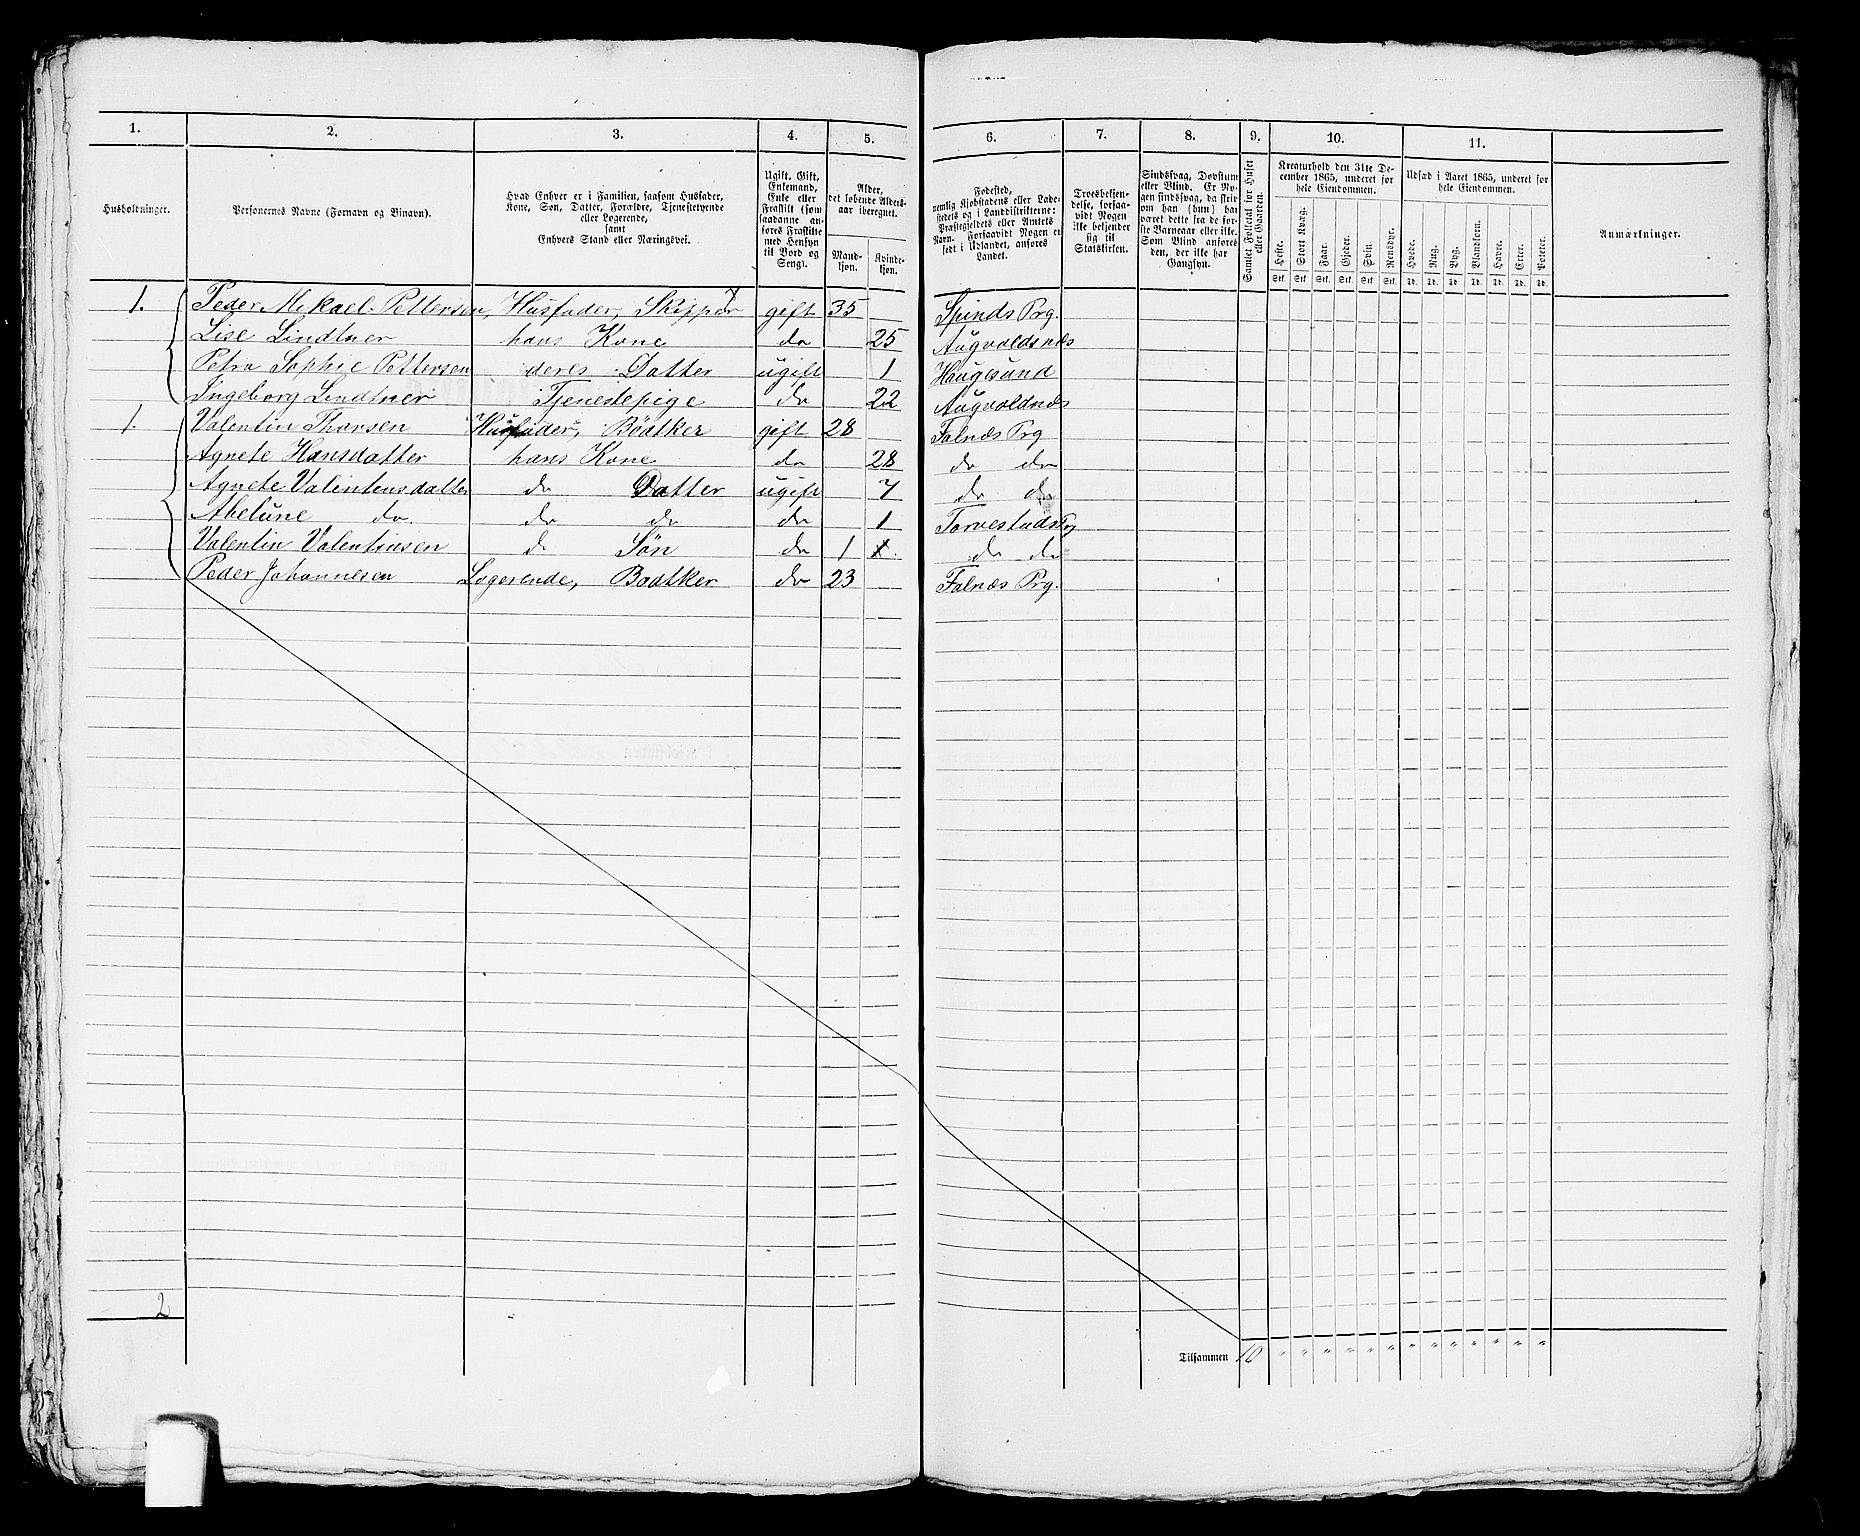 1. 2. 3. 4. 5. 6. 7. 8. 9. 10. 11.
Husholdninger.
Personernes Navne (Fornavn og Binavn).
Hvad Enhver er i Familien, saasom Husfader,
Kone, Søn, Datter, Forældre, Tjenestetyende
eller Logerende,
samt
Enhvers Stand eller Næringsvei.
Ugift, Gift,
Enkemand,
Enke eller
Fraskilt (som
saadanne an-
føres Fraskilte
med Hensyn
til Bord og
Seng).
Alder,
det løbende Alders-
aar iberegnet.
Mand-
kjøn.
Kvinde-
kjøn.
Fødested,
nemlig Kjøbstadens eller Lade-
stedets og i Landdistrikterne:
Præstegjeldets eller Amtets
Navn. Forsaavidt Nogen er
født i Udlandet, anføres
Landet.
Troesbekjen-
delse, forsaa-
vidt Nogen
ikke bekjender
sig til
Statskirken.
Sindssvag, Døvstum
eller Blind. Er No-
gen sindssvag, da skriv
om han (hun) har
været dette fra de før-
ste Barneaar eller ikke.
Som Blind anføres
den, der ikke har
Gangsyn.
Samlet Folketal for Huset
eller Gaarden.
Kreaturhold den 31te De-
cember 1865, underet for
hele Eiendommen.
Heste. Stort Kvæg. Faar. Gjeder. Svin. Rensdyr.
Stk. Stk. Stk. Stk. Stk. Stk.
Udsæd i Aaret 1865, underet for
hele Eiendommen.
Hvede. Rug. Byg. Blandkorn. Havre. Erter. Poteter.
Td. Td. Td. Td. Td. Td. Td.
Anmærkninger.
1. Peder Mikael Pettersen, Husfader, Skipper gift 35 Spinds Prg.
Lise Lindtner hans Kone do 25 Augvaldsnæs
Petra Sophie Pettersen deres Datter ugift 1 Haugesund
Ingeborg Lindtner Tjenestepige do 22 Augvaldnæs
1. Valentin Thorsen Husfader, Bødtker gift 28 Falnæs Prg
Agnete Hansdatter hans Kone do 28 do do
Agnete Valentensdatter do Datter ugift 7 do do
Abelune do. do do do 1 Torvestads Prg
Valentin Valentinsen do Søn do 1 do do
Peder Johannesen Logerende, Bødtker do 23 Falnæs Prg.
2
Tilsammen 10 " " " " " " " " " " " " "